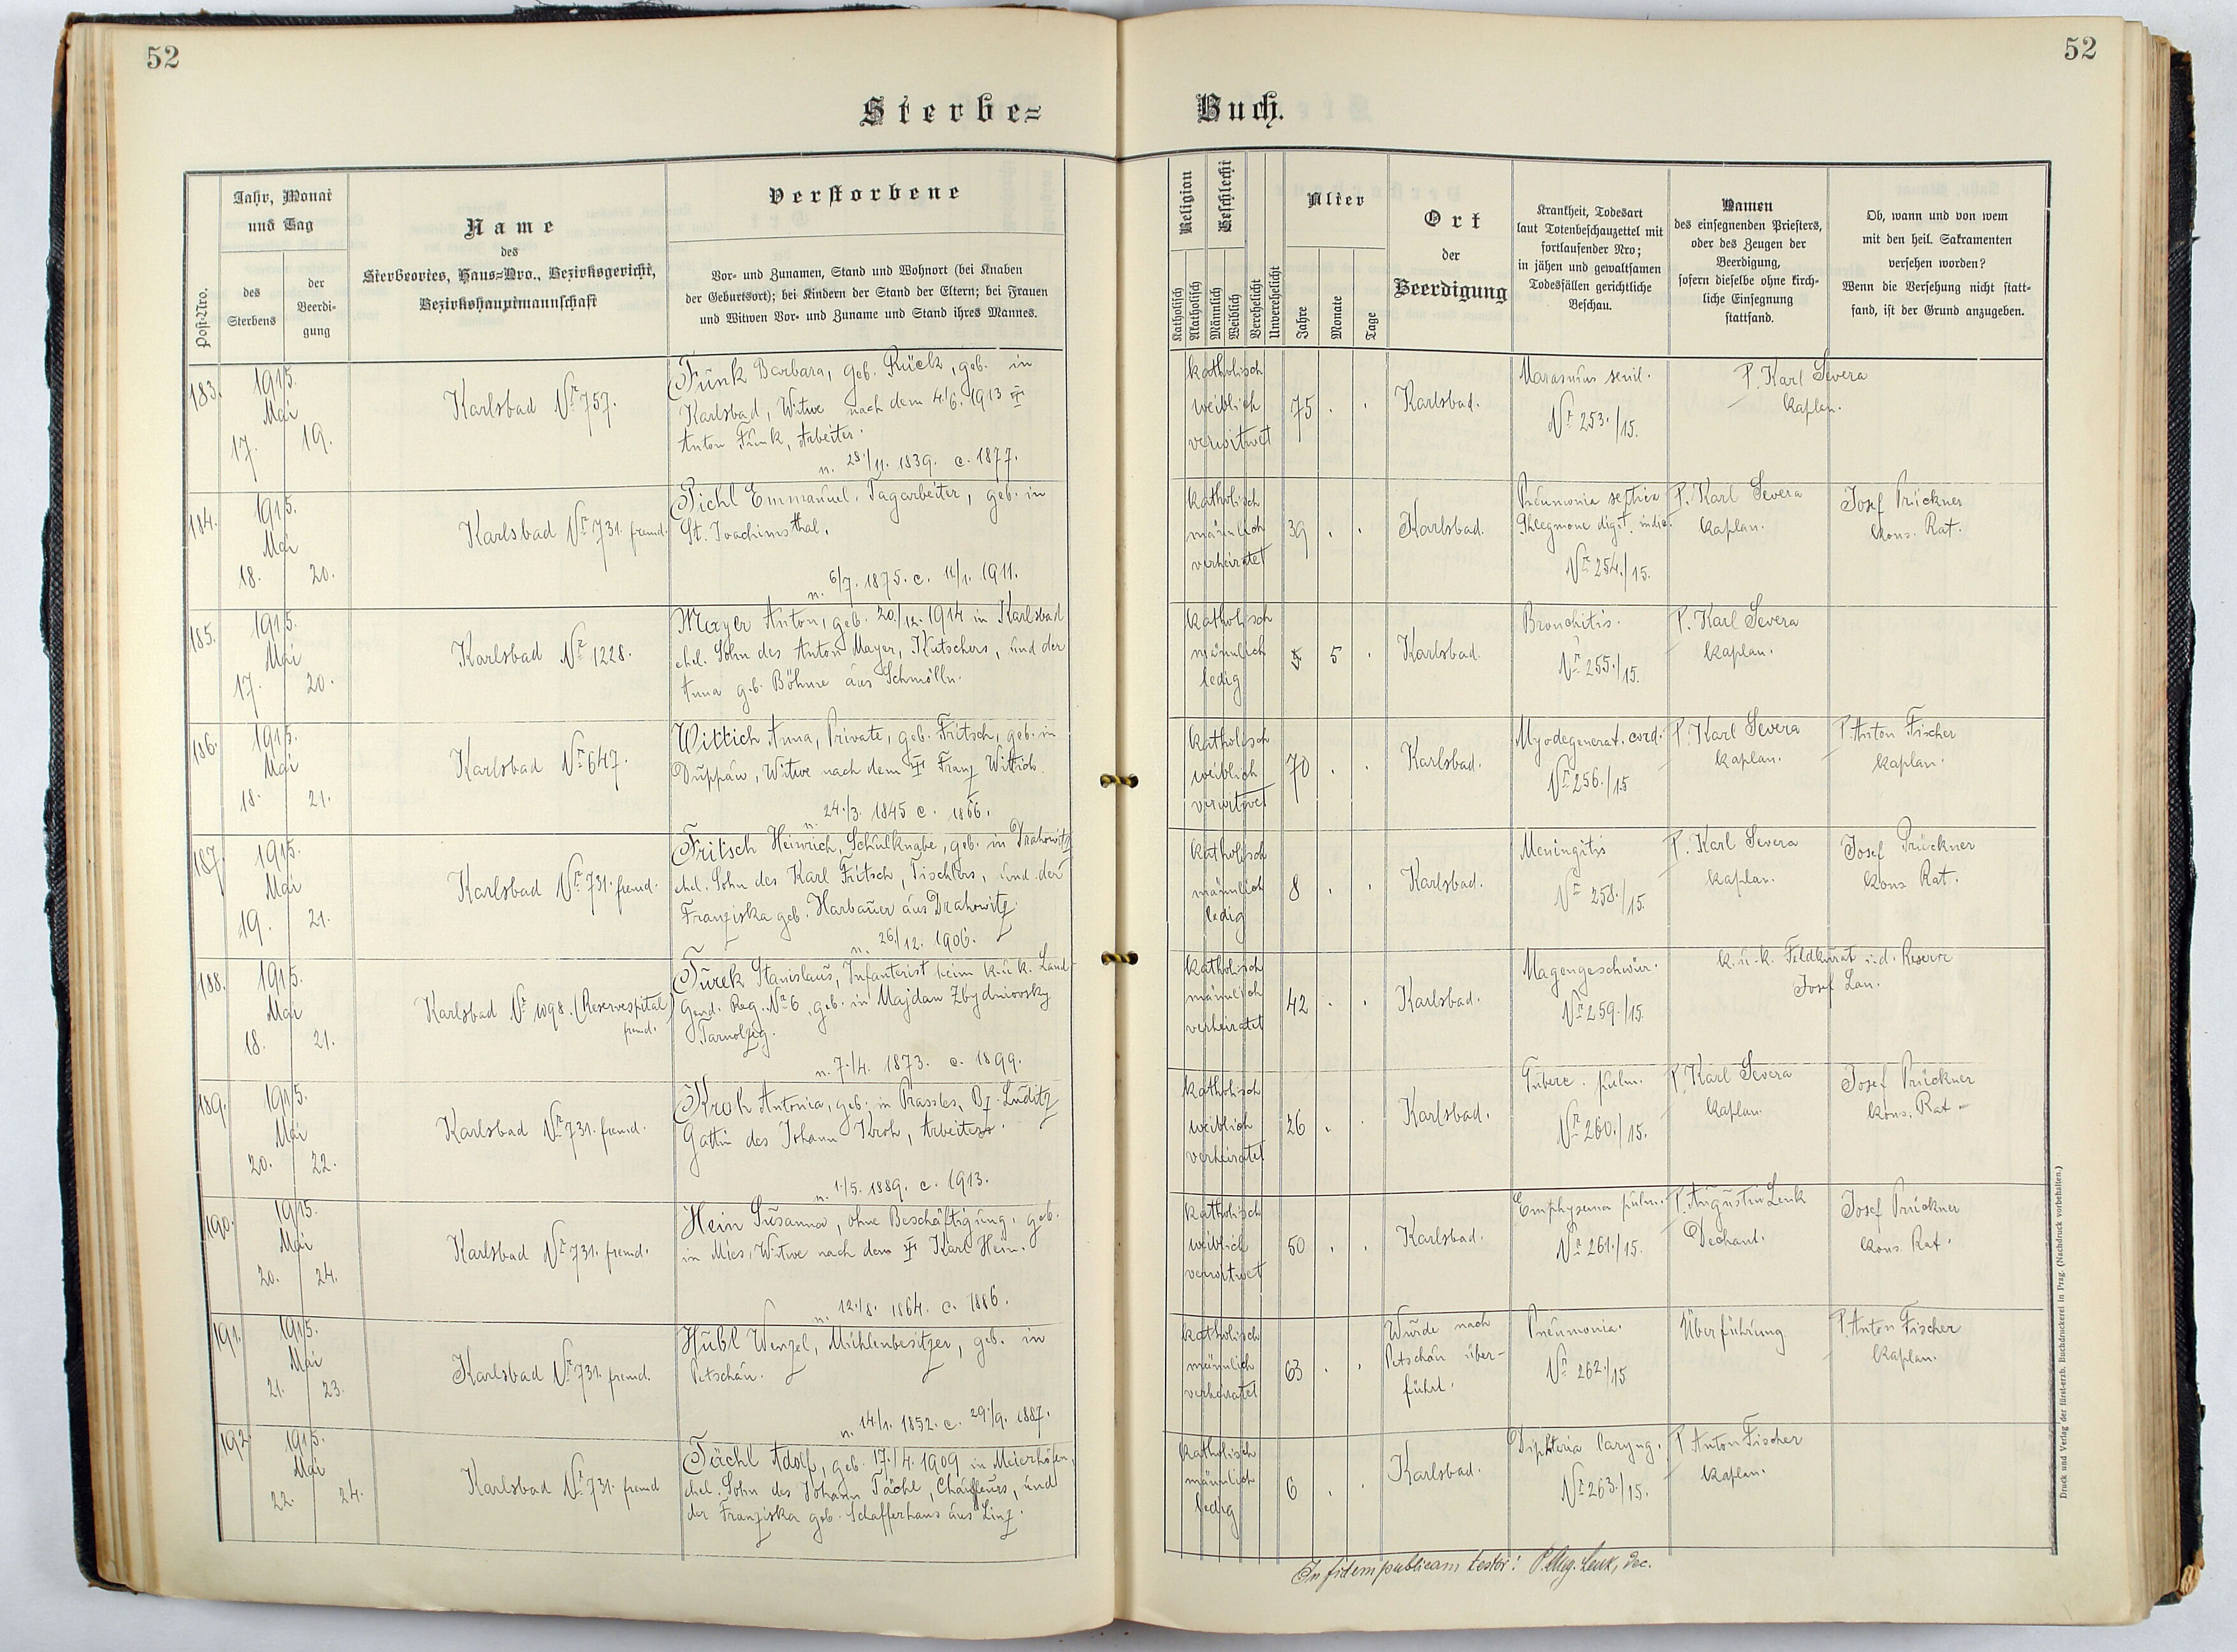 52
52
Sterbe=
Buch.
Post-Nro.
Jahr, Monat
und Tag
des
Sterbens
der
Beerdi-
gung
Name
des
Sterbeortes, Haus=Nro., Bezirksgericht,
Bezirkshauptmannschaft
Verstorbene
Vor- und Zunamen, Stand und Wohnort (bei Knaben
der Geburtsort); bei Kindern der Stand der Eltern; bei Frauen
und Witwen Vor- und Zuname und Stand ihres Mannes.
Religion
Katholisch
Akatholisch
Geschlecht
Männlich
Weiblich
Verehelicht
Unverehelicht
Alter
Jahre
Monate
Tage
Ort
der
Beerdigung
Krankheit, Todesart
laut Totenbeschauzettel mit
fortlaufender Nro;
in jähen und gewaltsamen
Todesfällen gerichtliche
Beschau.
Namen
des einsegnenden Priesters,
oder des Zeugen der
Beerdigung,
sofern dieselbe ohne kirch-
liche Einsegnung
stattfand.
Ob, wann und von wem
mit den heil. Sakramenten
versehen worden?
Wenn die Versehung nicht statt-
fand, ist der Grund anzugeben.
183.
1915.
Mai
17. 19.
Karlsbad Nr 757.
Funk Barbara, geb. Rück, geb. in
Karlsbad, Witwe nach dem 4./6. 1913 †
Anton Funk, Arbeiter.
n. 28./11. 1839. c. 1877.
katholisch
weiblich
verwitwet
75 . .
Karlsbad.
Marasmus senil.
Nr 253./15.
P. Karl Severa
Kaplan.
184.
1915.
Mai
18. 20.
Karlsbad Nr 731. fremd.
Pichl Emmanuel, Tagarbeiter, geb. in
St. Joachimsthal.
n. 6/7. 1875. c. 11/1. 1911.
katholisch
männlich
verheiratet
39 . .
Karlsbad.
Pneumonia septica
Phlegmone digit. indic.
Nr 254./15.
P. Karl Severa
Kaplan.
Josef Prückner
Kons. Rat.
185.
1915.
Mai
17. 20.
Karlsbad Nr 1228.
Mayer Anton, geb. 20./12. 1914 in Karlsbad
ehel. Sohn des Anton Mayer, Kutschers, und der
Anna geb. Böhme aus Schmölln.
katholisch
männlich
ledig
5 .
Karlsbad
Bronchitis.
Nr 255./15.
P. Karl Severa
Kaplan.
186.
1915.
Mai
18. 21.
Karlsbad Nr 647.
Wittich Anna, Private, geb. Fritsch, geb. in
Duppau, Witwe nach dem † Franz Wittich.
n. 24./3. 1845 c. 1866.
katholisch
weiblich
verwitwet
70 . .
Karlsbad.
Myodegenerat. cord.
Nr 256./15
P. Karl Severa
Kaplan.
P. Anton Fischer
Kaplan.
187.
1915.
Mai
19. 21.
Karlsbad Nr 731. fremd.
Fritsch Heinrich, Schulknabe, geb. in Drahowitz
ehel. Sohn des Karl Fritsch, Tischlers, und der
Franziska geb. Harbauer aus Drahowitz.
n. 26./12. 1906.
katholisch
männlich
ledig
8 . .
Karlsbad.
Meningitis
Nr 258./15.
P. Karl Severa
Kaplan.
Josef Prückner
Kons Rat.
188.
1915.
Mai
18. 21.
Karlsbad Nr 1098. (Reservespital)
fremd.
Turek Stanislaus, Infanterist beim k. u. k. Land-
Gend. Reg. Nr 6, geb. in Majdan Zbydniovsky
n. 7./4. 1873. c. 1899.
katholisch
männlich
verheiratet
42 . .
Karlsbad.
Magengeschwür.
Nr 259./15.
k. u. k. Feldkurat i. d. Reserve
Josef Lan.
189.
1915.
Mai
20. 22.
Karlsbad Nr 731. fremd.
Kroh Antonia, geb. in Prassles, Bz. Luditz
Gattin des Johann Kroh, Arbeiters.
n. 1./5. 1889. c. 1913.
katholisch
weiblich
verheiratet
26 . .
Karlsbad.
Tuberc. pulm.
Nr 260./15.
P. Karl Severa
Kaplan.
Josef Prückner
Kons. Rat.
190.
1915.
Mai
20. 24.
Karlsbad Nr 731. fremd.
Hein Susanna, ohne Beschäftigung, geb.
in Mies, Witwe nach dem † Karl Hein.
n. 12./8. 1864. c. 1886.
katholisch
weiblich
verwitwet
50 . .
Karlsbad.
Emphysema pulm.
Nr 261./15.
P. Augustin Lenk
Dechant.
Josef Prückner
Kons. Rat.
191.
1915.
Mai
21. 23.
Karlsbad Nr 731. fremd.
Hubl Wenzel, Mühlenbesitzer, geb. in
Petschau.
n. 14./1. 1852. c. 29./9. 1887.
katholisch
männlich
verheiratet
63 . .
Wurde nach
Petschau über-
führt.
Pneumonia.
Nr 262./15
Überführung
P. Anton Fischer
Kaplan.
192.
1915.
Mai
22. 24.
Karlsbad Nr 731. fremd
Tächl Adolf, geb. 17./4. 1909 in Meierhöfen,
ehel. Sohn des Johann Tächl, Chauffeurs, und
der Franziska geb. Schafferhans aus Linz.
katholisch
männlich
ledig
6 . .
Karlsbad.
Diphteria laryng.
Nr 263./15.
P. Anton Fischer
Kaplan.
In fidem publicam testor: P. Aug. Lenk, dec.
Druck und Verlag der fürst-erzb. Buchdruckerei in Prag. (Nachdruck vorbehalten.)